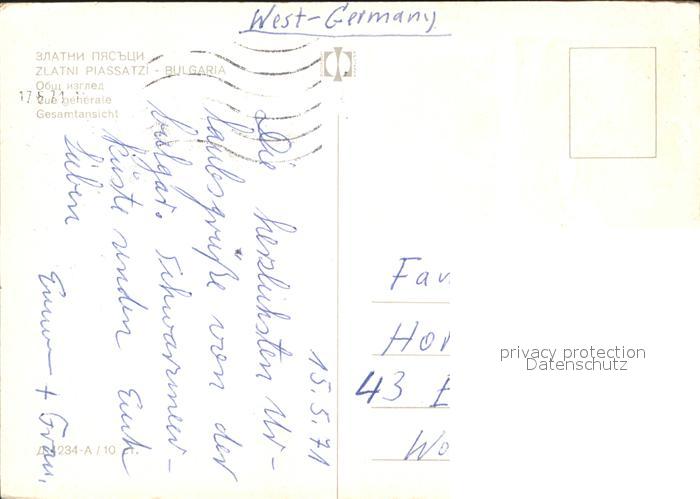 West-Germany
ЗЛАТНИ ПЯСЪЦИ
ZLATNI PIASSATZI - BULGARIA
Общ изглед
Vue générale
Gesamtansicht
15.5.71
Die herzlichsten Ur-
laubsgrüße von der
bulgar. Schwarzmeer-
küste senden Euch
Lieben
+ Frau.
-A / 10 ст.
Fam
Hor
43
Wo
privacy protection
Datenschutz